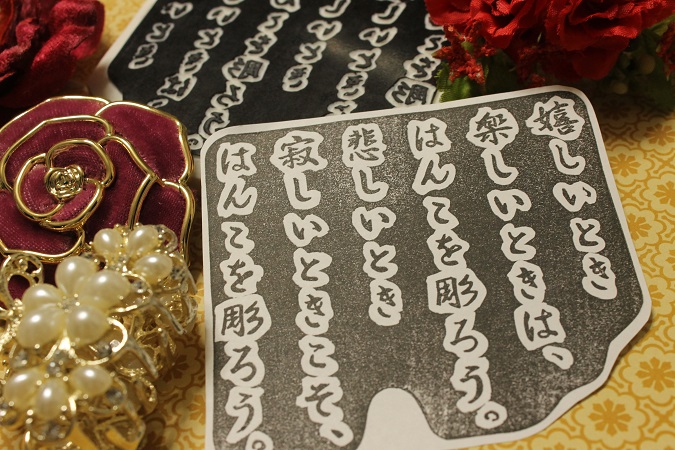 嬉しいとき
楽しいときは、
はんこを彫ろう。
悲しいとき
寂しいときこそ、
はんこを彫ろう。